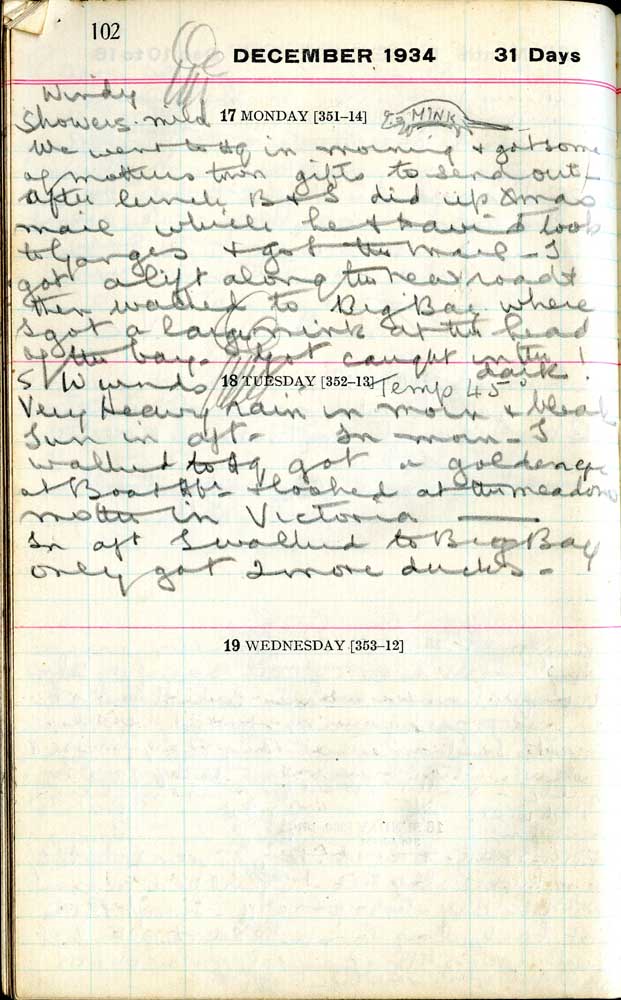 102
DECEMBER 1934 31 Days
Windy
Showers. mild 17 MONDAY [351–14] MINK
We went to Hq in morning & got some
of mothers town gifts to send out/
after lunch B & S did up Xmas
mail which he & David took
to Ganges & got the mail – I
got a lift along the new road &
then walked to Big Bay where
I got a large mink at the head
of the bay. I got caught in the
dark!
S W winds 18 TUESDAY [352–13] Temp 45°
Very Heavy Rain in morn & bleak
Sun in aft – In morn – I
walked to Hq got a goldeneye
at Boat Hs & looked at the meadows
mother in Victoria —
In aft I walked to Big Bay
only got 2 more ducks –
19 WEDNESDAY [353–12]